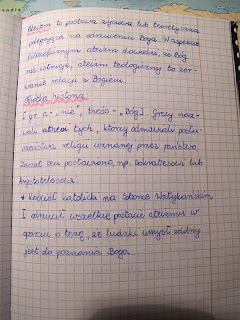 Ateizm to postawa życiowa lub teoretyczna
polegająca na odrzuceniu Boga. W aspekcie
filozoficznym ateizm dowodzi, że Bóg
nie istnieje, ateizm teologiczny to zer-
wanie relacji z Bogiem.
[gr. a - „nie”, theós - „Bóg]. Grecy naz-
wali atheoi tych, którzy odmawiali posłu-
szeństwa religii uznanej przez państwo.
Zarzut ten postawiono np. Sokratesowi lub
Arystotelesowi.
* Kościół katolicki na Soborze Watykańskim
I odrzucił wszelkie postacie ateizmu w
oparciu o tezę, że ludzki umysł zdolny
jest do poznania Boga.